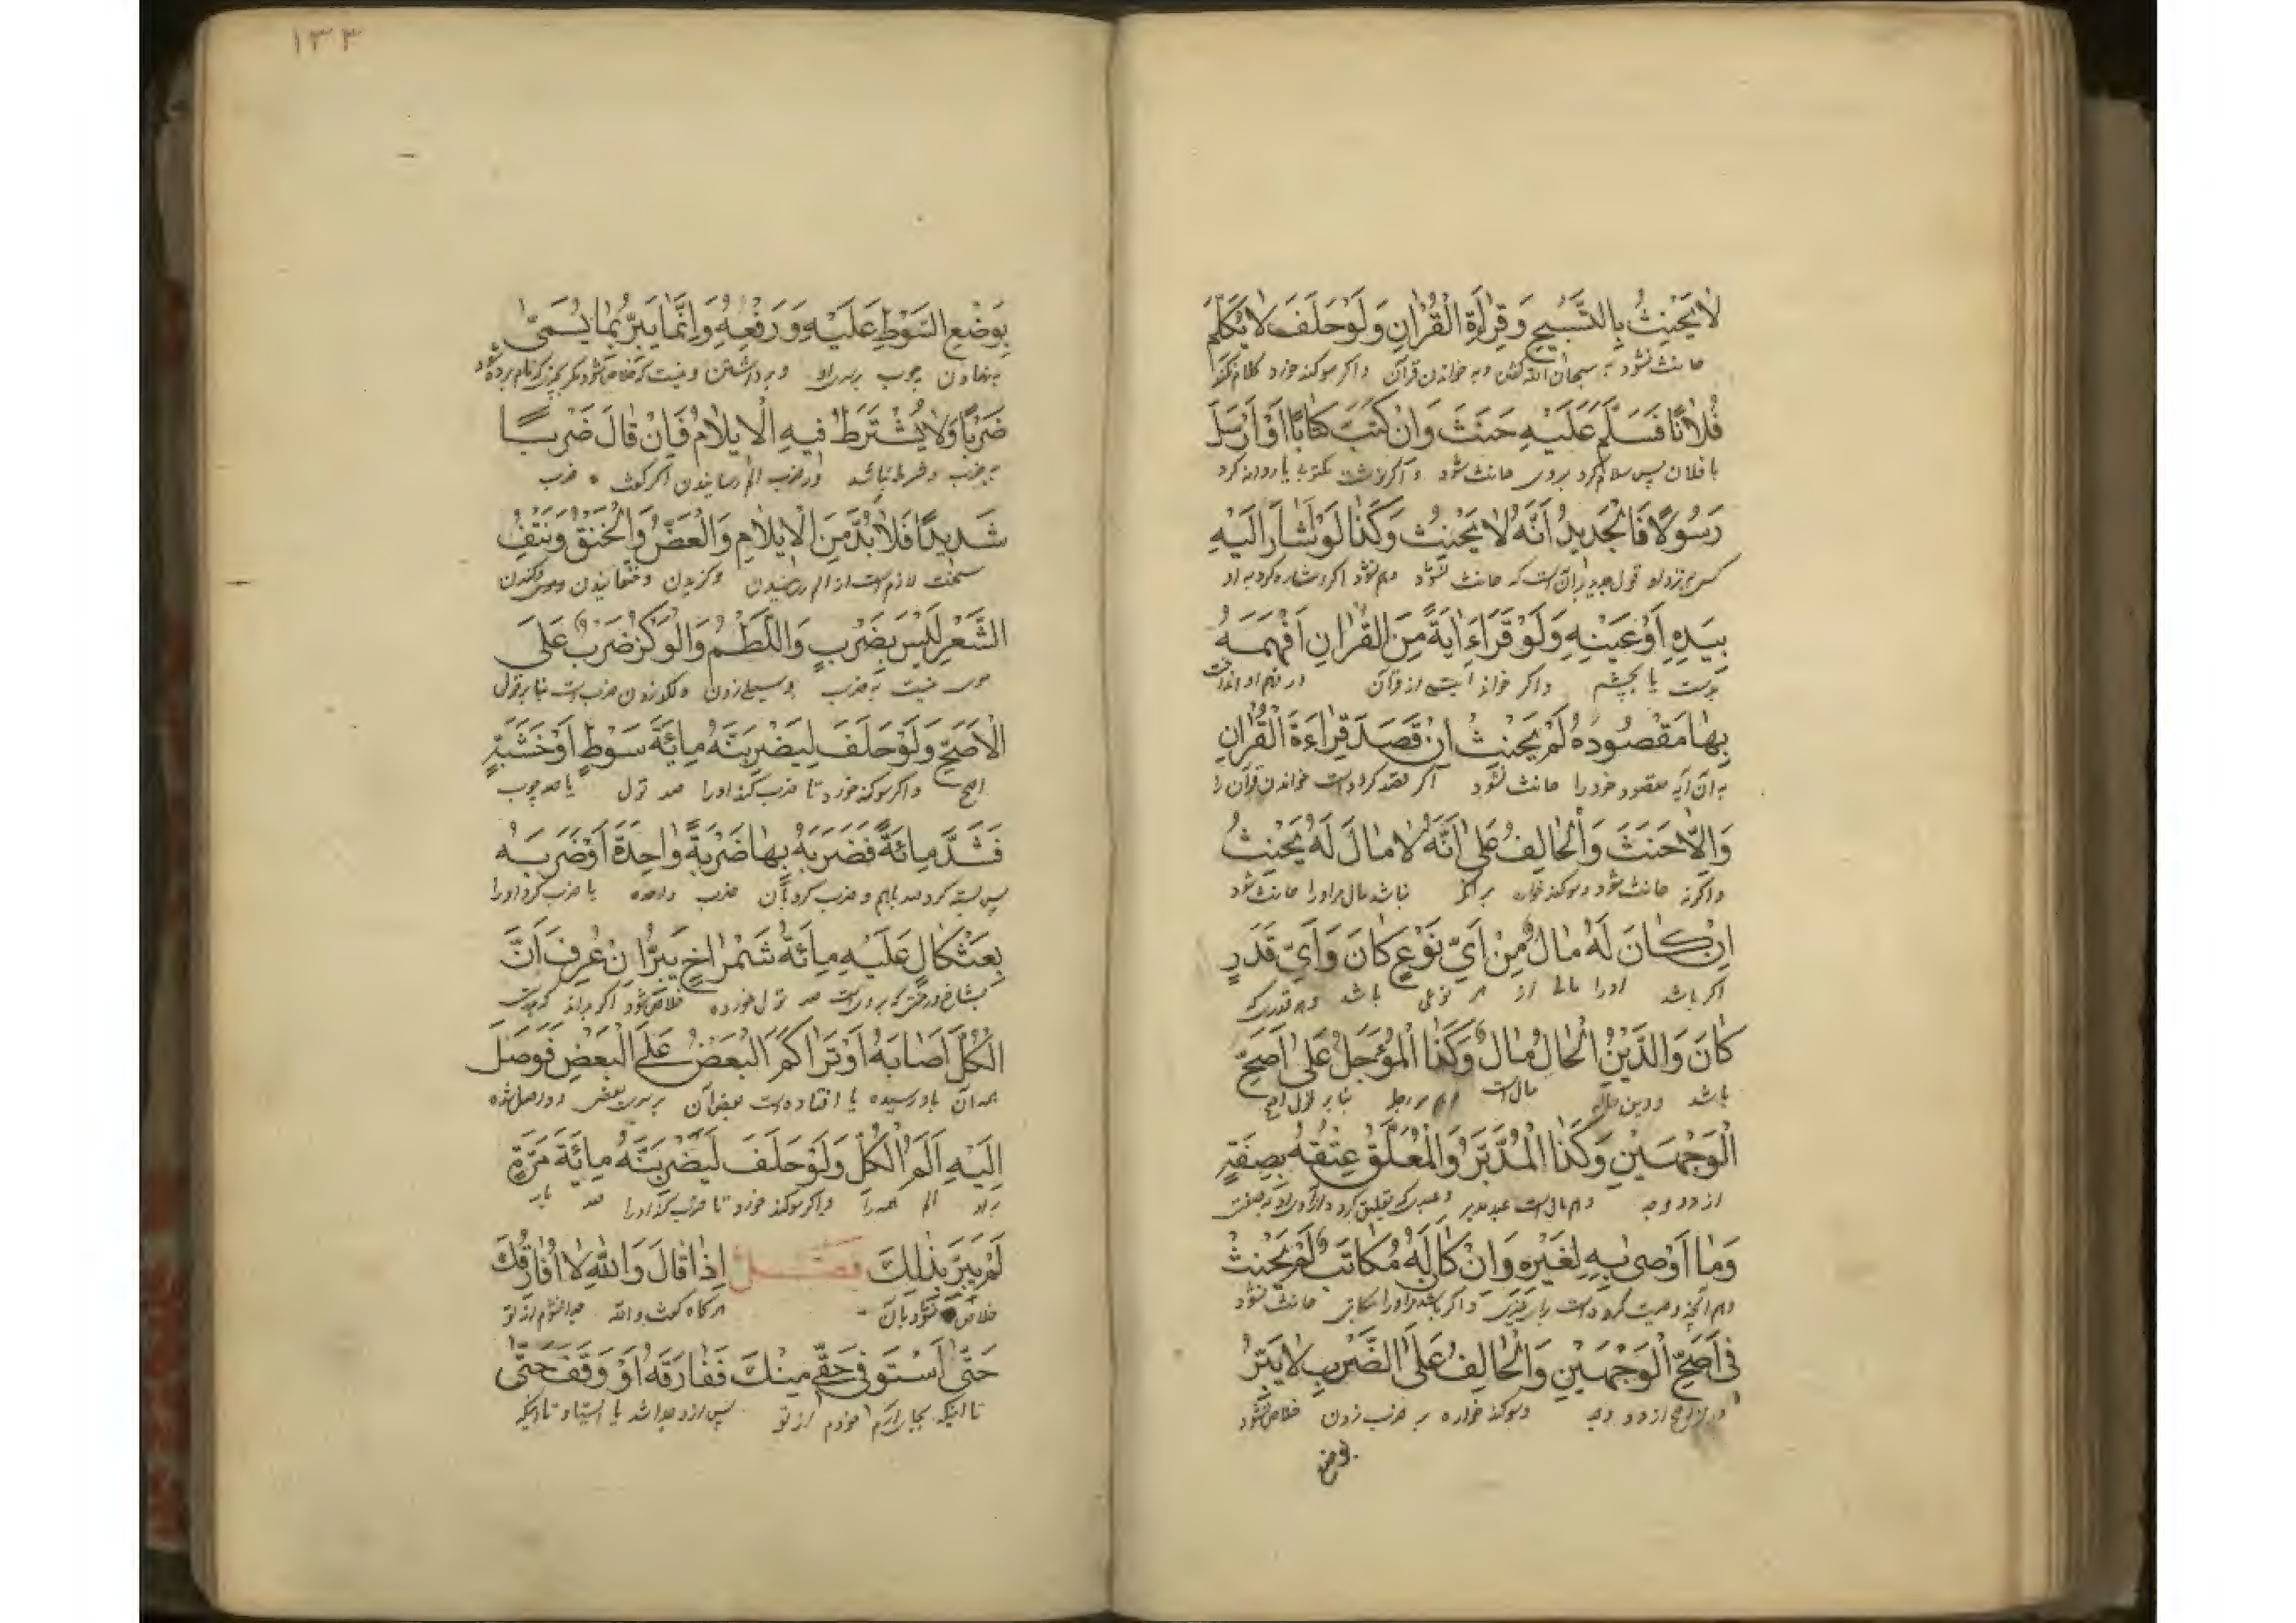 لا يَحْنِثُ بِالتَّسْبِيحِ وَقِرَاءَةِ الْقُرْانِ وَلَوْ حَلَفَ لا يُكَلِّمُ
حانث نشود به سبحان الله گفتن و به خواندن قرآن واکر سوکند خورد کلام نکند
فُلانًا فَسَلَّمَ عَلَيْهِ حَنَثَ وَانْ كَتَبَ كِتَابًا اَوْ اَرْسَلَ
با فلان پس سلام کرد بروی حانث شود واکر نوشت مکتوبی یا روانه کرد
رَسُولًا فَالْجَدِيدُ اَنَّهُ لا يَحْنِثُ وَكَذَا لَوْ اَشَارَ اِلَيْهِ
کسی نزد او قول جدید آن است که حانث نشود وهم نشود اکر اشاره کرد به او
بِيَدِهِ اَوْ عَيْنِهِ وَلَوْ قَرَاءَ ايَةً مِنَ الْقُرْانِ اَفْهَمَهُ
بدست یا بچشم واکر خواند آیتی از قرآن در فهم او انداخت
بِهَا مَقْصُودَهُ لَمْ يَحْنِثْ اِنْ قَصَدَ قِرَاءَةَ الْقُرْانِ
به آن آیه مقصود خود را حانث نشود اکر قصد کرده است خواندن قرآن را
وَاِلّا حَنَثَ وَالْحَالِفُ عَلى اَنَّهُ لا مَالَ لَهُ يَحْنِثُ
واکرنه حانث شود وسوکند خوار بر آنکه نباشد مال مر اورا حانث شود
اِنْ كَانَ لَهُ مَالٌ مِنْ اَيِّ نَوْعٍ كَانَ وَاَيِّ قَدَرٍ
اکر باشد اورا مالی از هر نوعی باشد وهر قدر که
كَانَ وَالدَّيْنُ الْحَالُّ مَالٌ وَكَذَا الْمُؤَجَّلُ عَلى اَصَحِّ
باشد ودین حال مال است وهم مؤجل بنابر قول اصح
الْوَجْهَيْنِ وَكَذَا الْمُدَبَّرُ وَالْمُعَلَّقُ عِتْقُهُ بِصِفَةٍ
از دو وجه وهم مال است عبد مدبر وعبدی که تعلیق کرده آزادی او به صفت
وَمَا اَوْصى بِهِ لِغَيْرِهِ وَانْ كَانَ لَهُ مُكَاتَبٌ لَمْ يَحْنِثْ
وهم آنچه وصیت کرده است برای غیری واکر باشد مر اورا مکاتبی حانث نشود
فِي اَصَحِّ الْوَجْهَيْنِ وَالْحَالِفُ عَلَى الضَّرْبِ لا يَبَرُّ
در اصح از دو وجه وسوکند خواره به ضرب زدن خلاص نشود
بوضع
١٣٣
بِوَضْعِ السَّوْطِ عَلَيْهِ وَرَفْعِهِ وَاِنَّمَا يَبَرُّ بِمَا يُسَمّى
بنهادن چوب بر او وبرداشتن ونیست که خلاص شود مکر بچیزی که نام برده شود
ضَرْبًا وَلا يُشْتَرَطُ فِيهِ الْاِيلامُ فَاِنْ قَالَ ضَرْبًا
به ضرب وشرط نباشد در ضرب الم رسانیدن اکر کفت ضرب
شَدِيدًا فَلا بُدَّ مِنَ الْاِيلامِ وَالْعَضُّ وَالْخَنْقُ وَنَتْفُ
سخت لازم است از الم رسانیدن وکزیدن وخفانیدن وکندن
الشَّعْرِ لَيْسَ بِضَرْبٍ وَاللَّطْمُ وَالْوَكْزُ ضَرْبٌ عَلَى
موی نیست به ضرب وسیلی زدن ولکد زدن ضرب است بنابر قول
الْاَصَحِّ وَلَوْ حَلَفَ لِيَضْرِبَنَّهُ مِائَةَ سَوْطٍ اَوْ خَشَبَةٍ
اصح واکر سوکند خورد تا ضرب کند اورا صد تول یا صد چوب
فَشَدَّ مِائَةً فَضَرَبَهُ بِهَا ضَرْبَةً وَاحِدَةً اَوْ ضَرَبَهُ
پس بسته کرد صد باهم وضرب کرد بآن ضرب واحده یا ضرب کرد اورا
بِعَثْكَالٍ عَلَيْهِ مِائَةُ شَمْرَاخٍ يَبَرُّ اِنْ عُرِفَ اَنَّ
بشاخ درختی که بروی است صد تول خورده خلاص شود اکر بداند که
الْكُلَّ اَصَابَهُ اَوْ تَرَاكَمَ الْبَعْضُ عَلَى الْبَعْضِ فَوَصَلَ
همه آن باو رسیده یا افتاده است بعض آن بر بعض ودر وصل شده
اِلَيْهِ اَلَمُ الْكُلِّ وَلَوْ حَلَفَ لَيَضْرِبَنَّهُ مِائَةَ مَرَّةٍ
به او الم همه را واکر سوکند خورد تا ضرب کند اورا صد بار
لَمْ يَبَرَّ بِذلِكَ فَصْلٌ اِذَا قَالَ وَاللهِ لا اُفَارِقُكَ
خلاص نشود بآن هرکاه کفت والله جدا نشوم از تو
حَتّى اَسْتَوْفِيَ حَقِّي مِنْكَ فَفَارَقَهُ اَوْ وَقَفَ حَتّى
تا اینکه بجا آرم حق خودم از تو پس از و جدا شد یا استاد تا اینکه